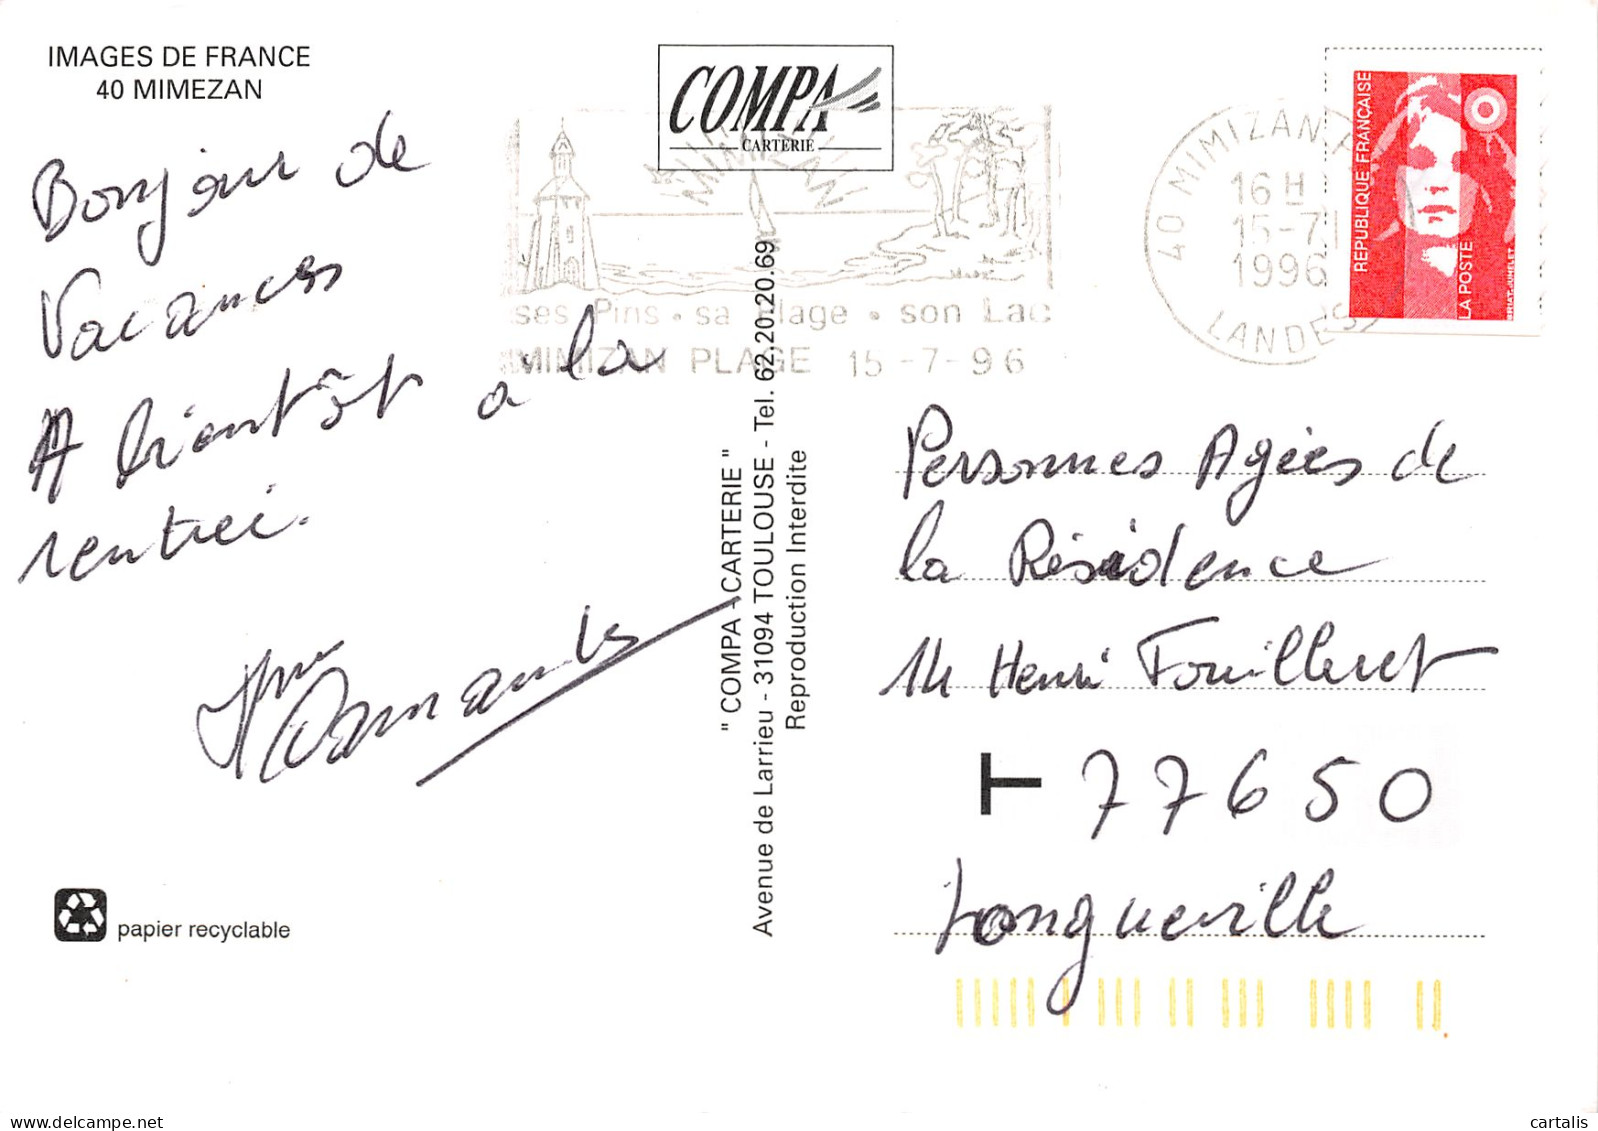 IMAGES DE FRANCE
40 MIMEZAN
COMPA
CARTERIE
MIMIZAN
ses Pins • sa plage • son Lac
MIMIZAN PLAGE 15 -7-96
40 MIMIZAN P
16 H
15-7
1996
LANDES
REPUBLIQUE FRANÇAISE
LA POSTE
Bonjour de
Vacances
A bientôt a la
rentrée.
Mme
" COMPA - CARTERIE "
Avenue de Larrieu - 31094 TOULOUSE - Tel. 62.20.20.69
Reproduction Interdite
Personnes Agées de
la Résidence
14 Henri Fouilleret
T 77650
Longueville
papier recyclable
cartalis